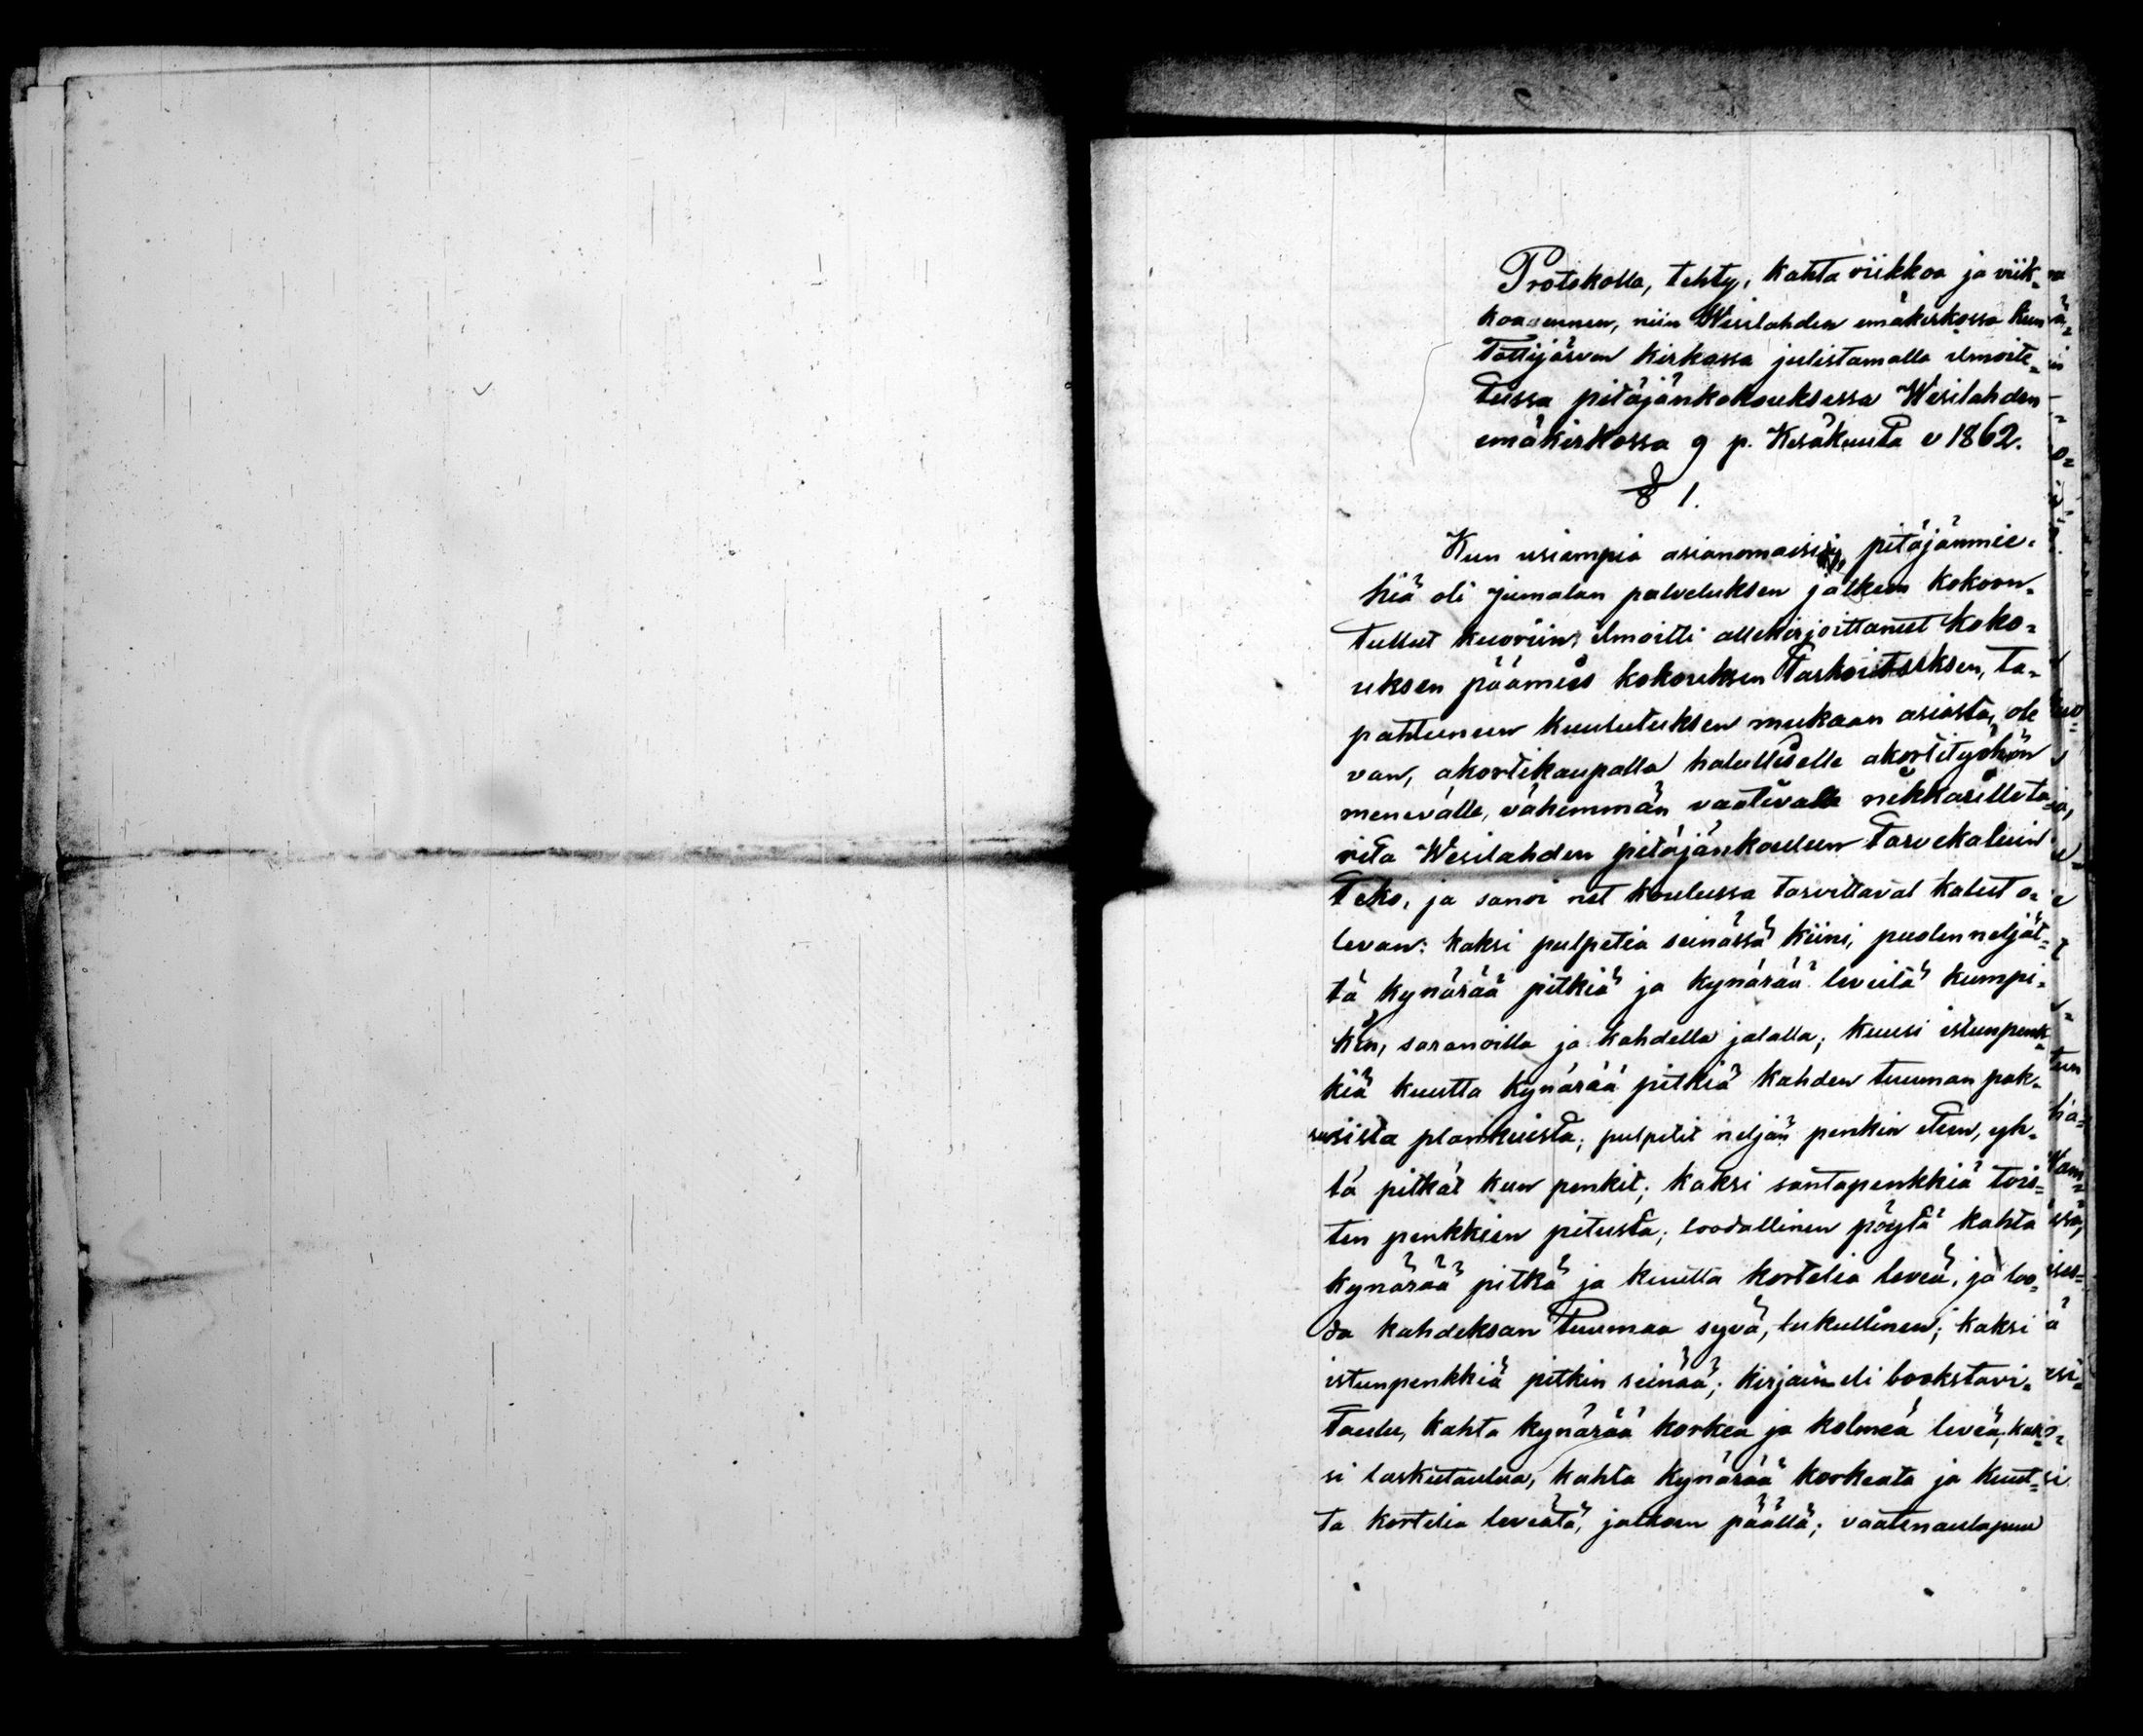 Protokolla, tehty, kahta viikkoa ja viik-
koa ennen, niin Wesilahden emäkirkossa kun
Tottijärven kirkossa julistamalla ilmoite-
tussa pitäjänkokouksessa Wesilahden
emäkirkossa 9 p. Kesäkuuta v 1862.
§ 1.
Kun usiampia asianomaisia pitäjänmie-
hiä oli jumalan palveluksen jälkeen kokoon-
tullut kuoriin, ilmoitti allekirjoittanut koko-
uksen päämies kokouksen tarkoituksen, ta-
pahtuneen kuulutuksen mukaan asiasta, ole
van, akortikaupalla halulliselle akortityöhön
menevälle, vähemmän vaativalle nikkarille ta-
rita Wesilahden pitäjänkouluun tarvekaluin
teko, ja sanoi net koulussa tarvittavat kalut o-
levan: kaksi pulpetia seinässä kiini, puolen neljät-
tä kynärää pitkiä ja kynärää leveitä kumpi-
kin, saranoilla ja kahdella jalalla; kuusi istunpenk-
kiä kuutta kynärää pitkiä kahden tuuman pak-
suisista plankuista; pulpetit neljän penkin eteen, yh-
tä pitkät kun penkit; kaksi santapenkkiä tois-
ten penkkien pitusta; loodallinen pöytä kahta
kynärää pitkä ja kuutta kortelia leveä, ja loo-
da kahdeksan tuumaa syvä, lukullinen; kaksi
istunpenkkiä pitkin seinää; kirjain eli bookstavi-
taulu, kahta kynärää korkea ja kolmea leveä; kak-
si laskutaulua, kahta kynärää korkeata ja kuut-
ta kortelia leveätä, jalkain päällä; vaatenaulapuu